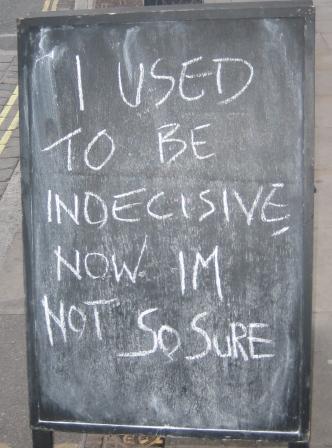 I USED
TO BE
INDECISIVE
NOW IM
NOT SO SURE